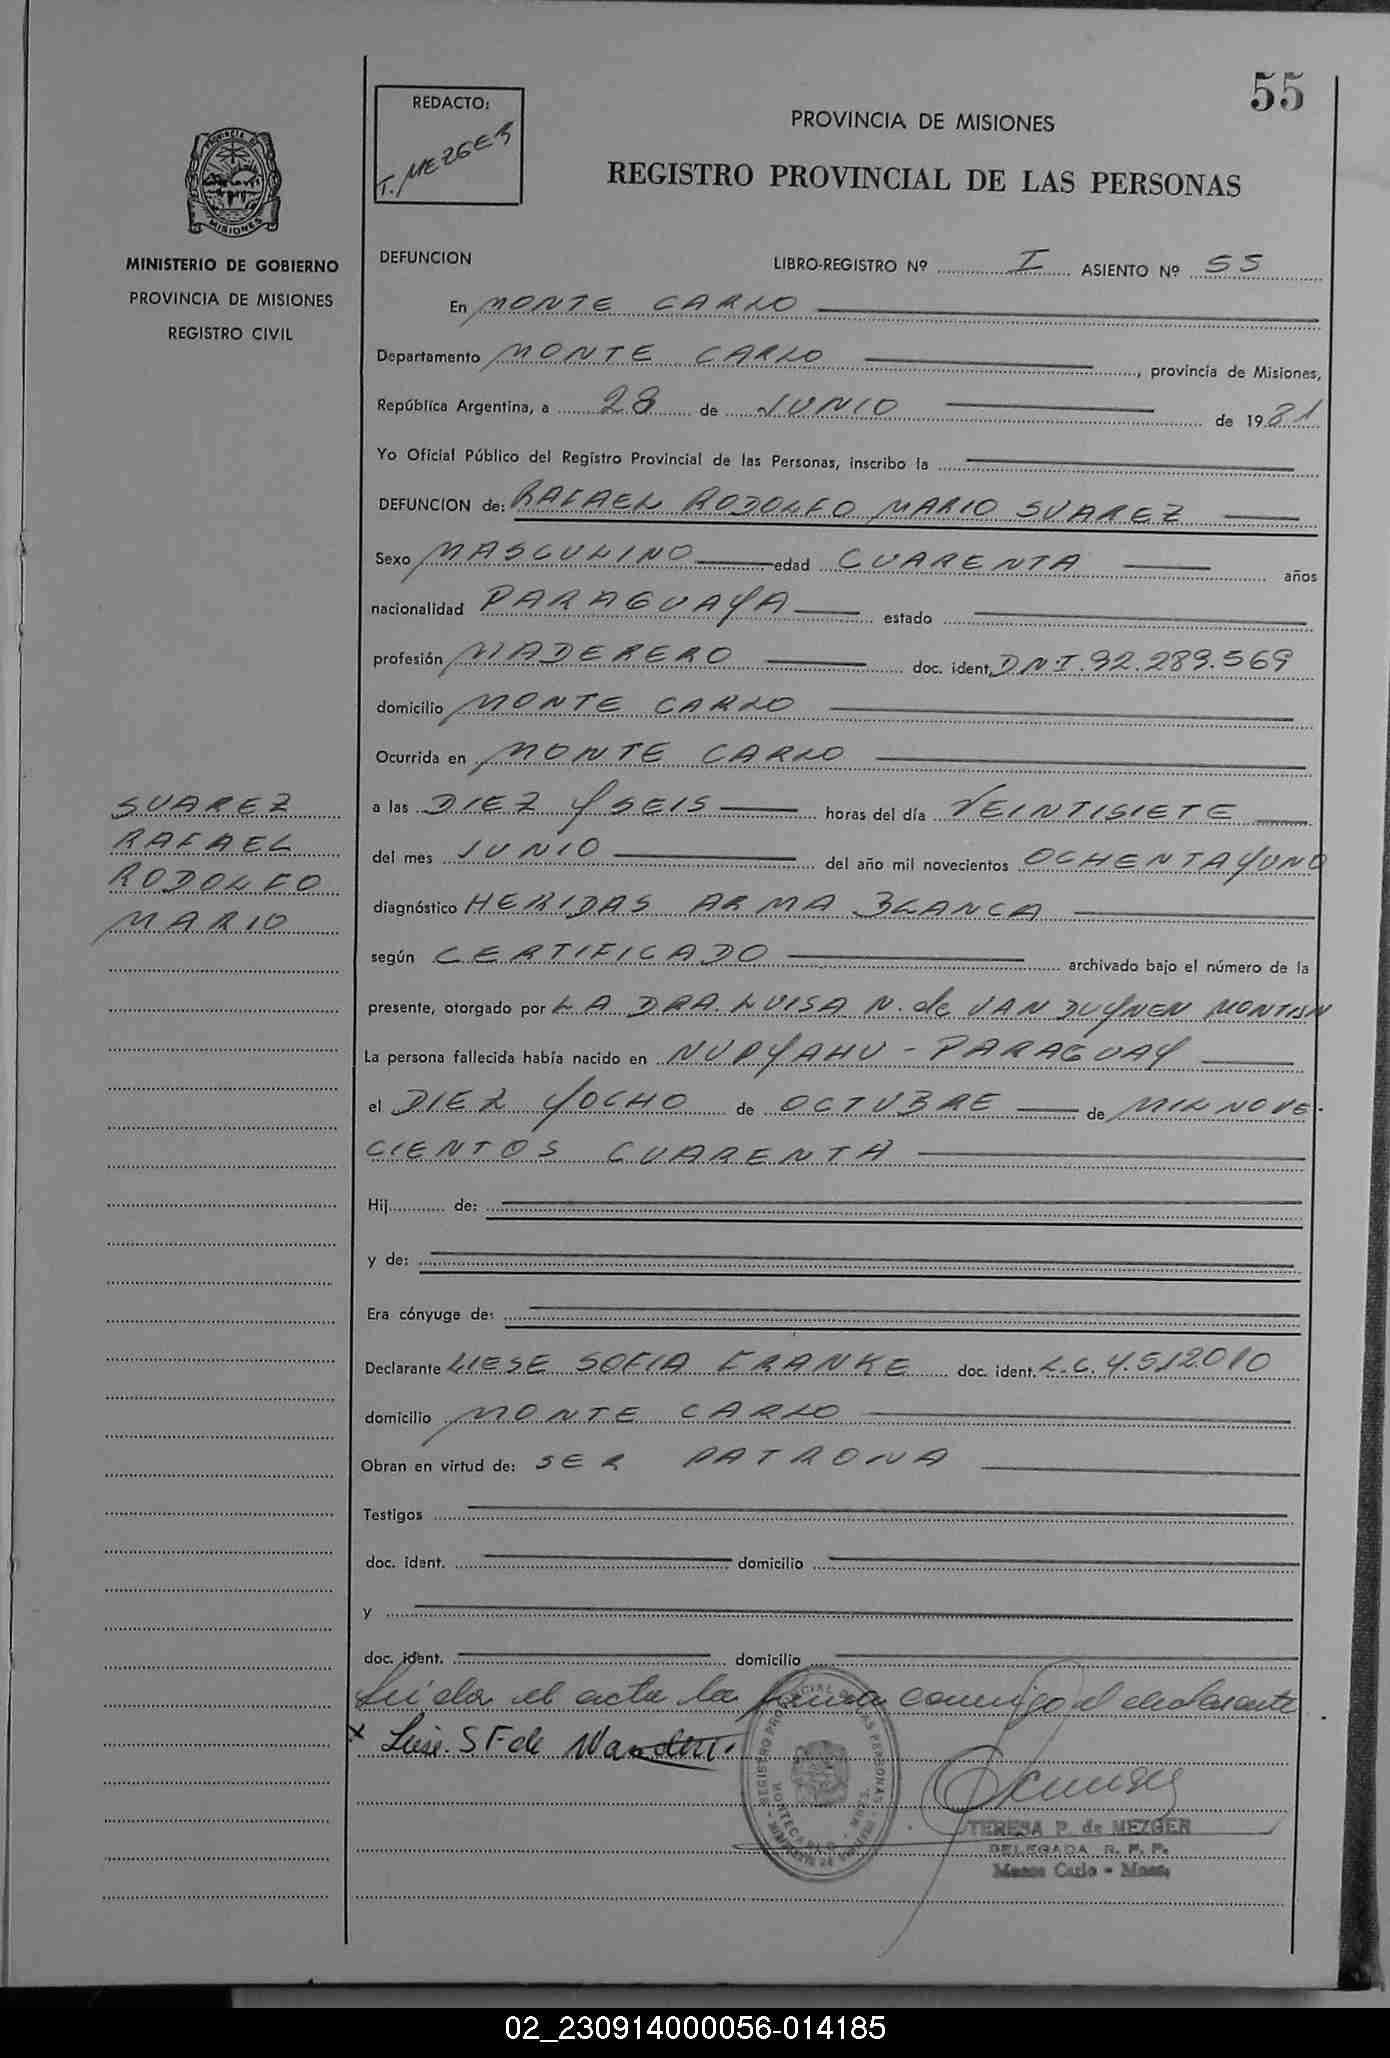 55
REDACTO:
T. MEZGER
PROVINCIA DE MISIONES
REGISTRO PROVINCIAL DE LAS PERSONAS
PROVINCIA DE
MISIONES
MINISTERIO DE GOBIERNO
PROVINCIA DE MISIONES
REGISTRO CIVIL
DEFUNCION LIBRO-REGISTRO Nº I ASIENTO Nº 55
En MONTE CARLO
Departamento MONTE CARLO, provincia de Misiones,
República Argentina, a 28 de JUNIO de 1981
Yo Oficial Público del Registro Provincial de las Personas, inscribo la
DEFUNCION de: RAFAEL RODOLFO MARIO SUAREZ
Sexo MASCULINO edad CUARENTA años
nacionalidad PARAGUAYA estado
profesión MADERERO doc. ident. DNI. 92.289.569
domicilio MONTE CARLO
Ocurrida en MONTE CARLO
SUAREZ
RAFAEL
RODOLFO
MARIO
a las DIEZ Y SEIS horas del día VEINTISIETE
del mes JUNIO del año mil novecientos OCHENTA Y UNO
diagnóstico HERIDAS ARMA BLANCA
según CERTIFICADO archivado bajo el número de la
presente, otorgado por LA DRA. LUISA N. de VAN DUYNEN
La persona fallecida había nacido en NUPYAHU - PARAGUAY
el DIEZ Y OCHO de OCTUBRE de MIL NOVE-
CIENTOS CUARENTA
Hij de:
y de:
Era cónyuge de:
Declarante LIESE SOFIA FRANKE doc. ident. L.C. 4.512.010
domicilio MONTE CARLO
Obran en virtud de: SER PATRONA
Testigos
doc. ident. domicilio
y
doc. ident. domicilio
Leída el acta la firma conmigo el declarante
x Liese S F de
REGISTRO PROVINCIAL DE LAS PERSONAS
MONTECARLO - MNES.
TERESA P. de MEZGER
DELEGADA R. P. P.
Monte Carlo - Mnes.
02_230914000056-014185